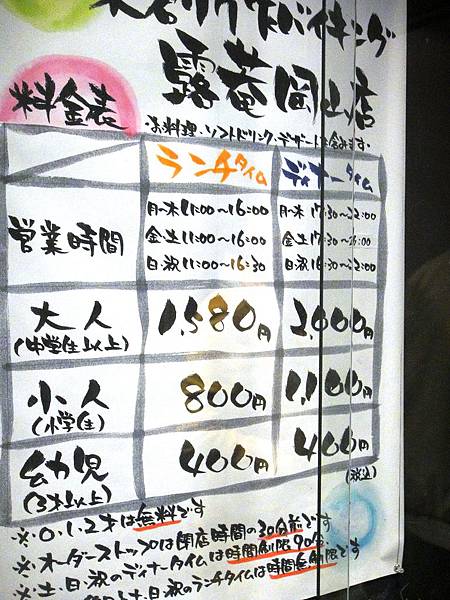 バイキング
露菴 岡山店
料金表
お料理・ソフトドリンク・デザート含みます。
ランチタイム ディナータイム
営業時間
月~木 11:00~16:00 月~木 17:30~22:00
金土 11:00~16:00 金土 17:30~
日、祝 11:00~16:30 日、祝 16:30~22:00
大人 1,580円 2,000円
(中学生以上)
小人 800円 1,100円
(小学生)
幼児 400円 400円
(3才以上)
(税込)
※0.1.2才は無料です
※オーダーストップは閉店時間の30分前です
※土、日、祝のディナータイムは時間制限90分、
日、祝のランチタイムは時間無制限です